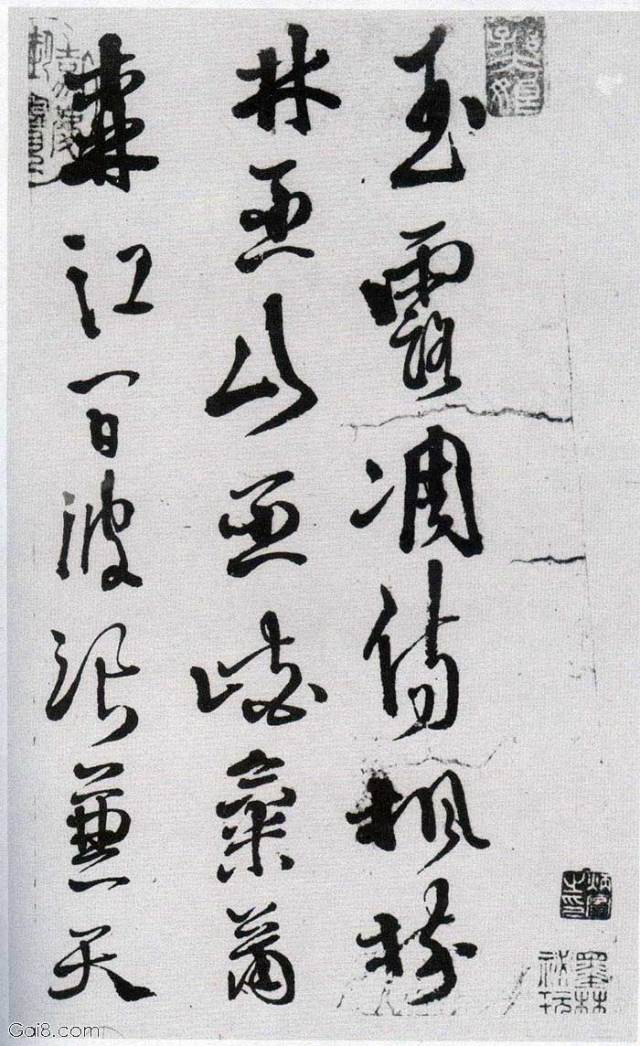 玉露凋傷楓樹
林巫山巫峽氣蕭
森江間波浪兼天
墨林祕玩
Gai8.com